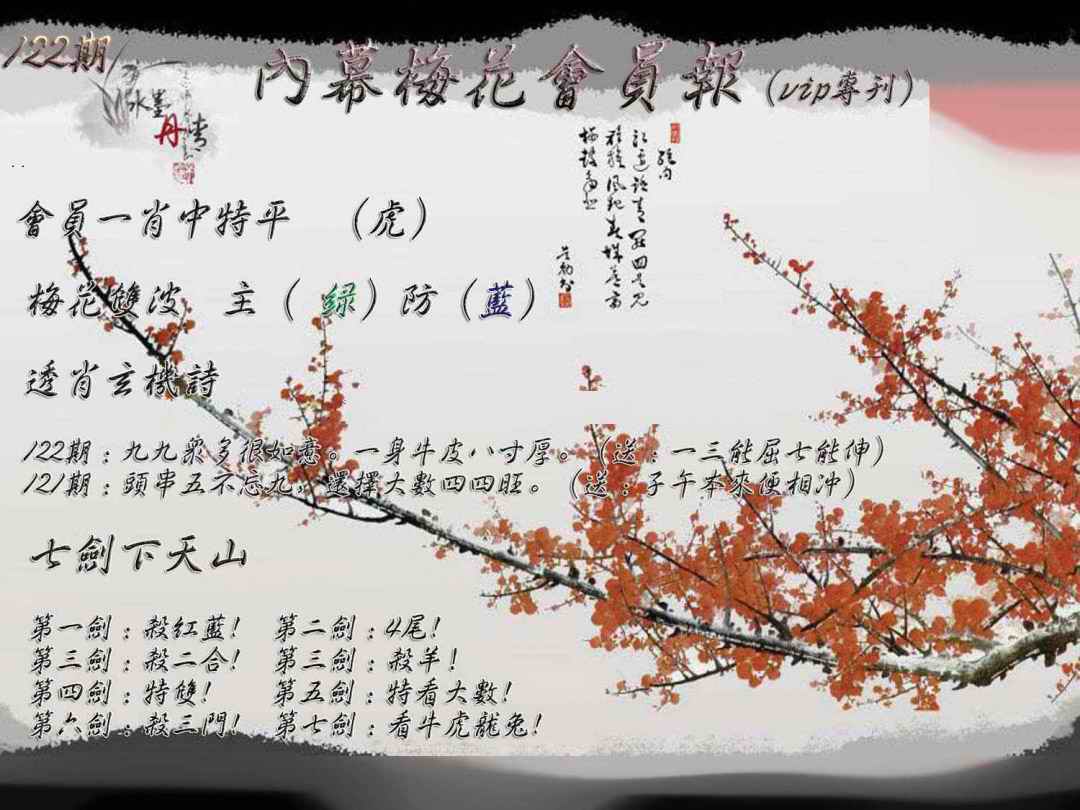 122期
內幕梅花會員報(vip專刊)
水墨
丹青
..
會員一肖中特平 (虎)
梅花雙波 主(綠)防(藍)
透肖玄機詩
122期:九九眾多很如意。一身牛皮八寸厚。(送:一三能屈七能伸)
121期:頭串五不忘九,選擇大數四四旺。(送:子午本來便相冲)
七劍下天山
第一劍:殺紅藍! 第二劍:4尾!
第三劍:殺二合! 第三劍:殺羊!
第四劍:特雙! 第五劍:特看大數!
第六劍:殺三門! 第七劍:看牛虎龍兔!